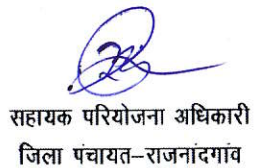 सहायक परियोजना अधिकारी
जिला पंचायत–राजनांदगांव